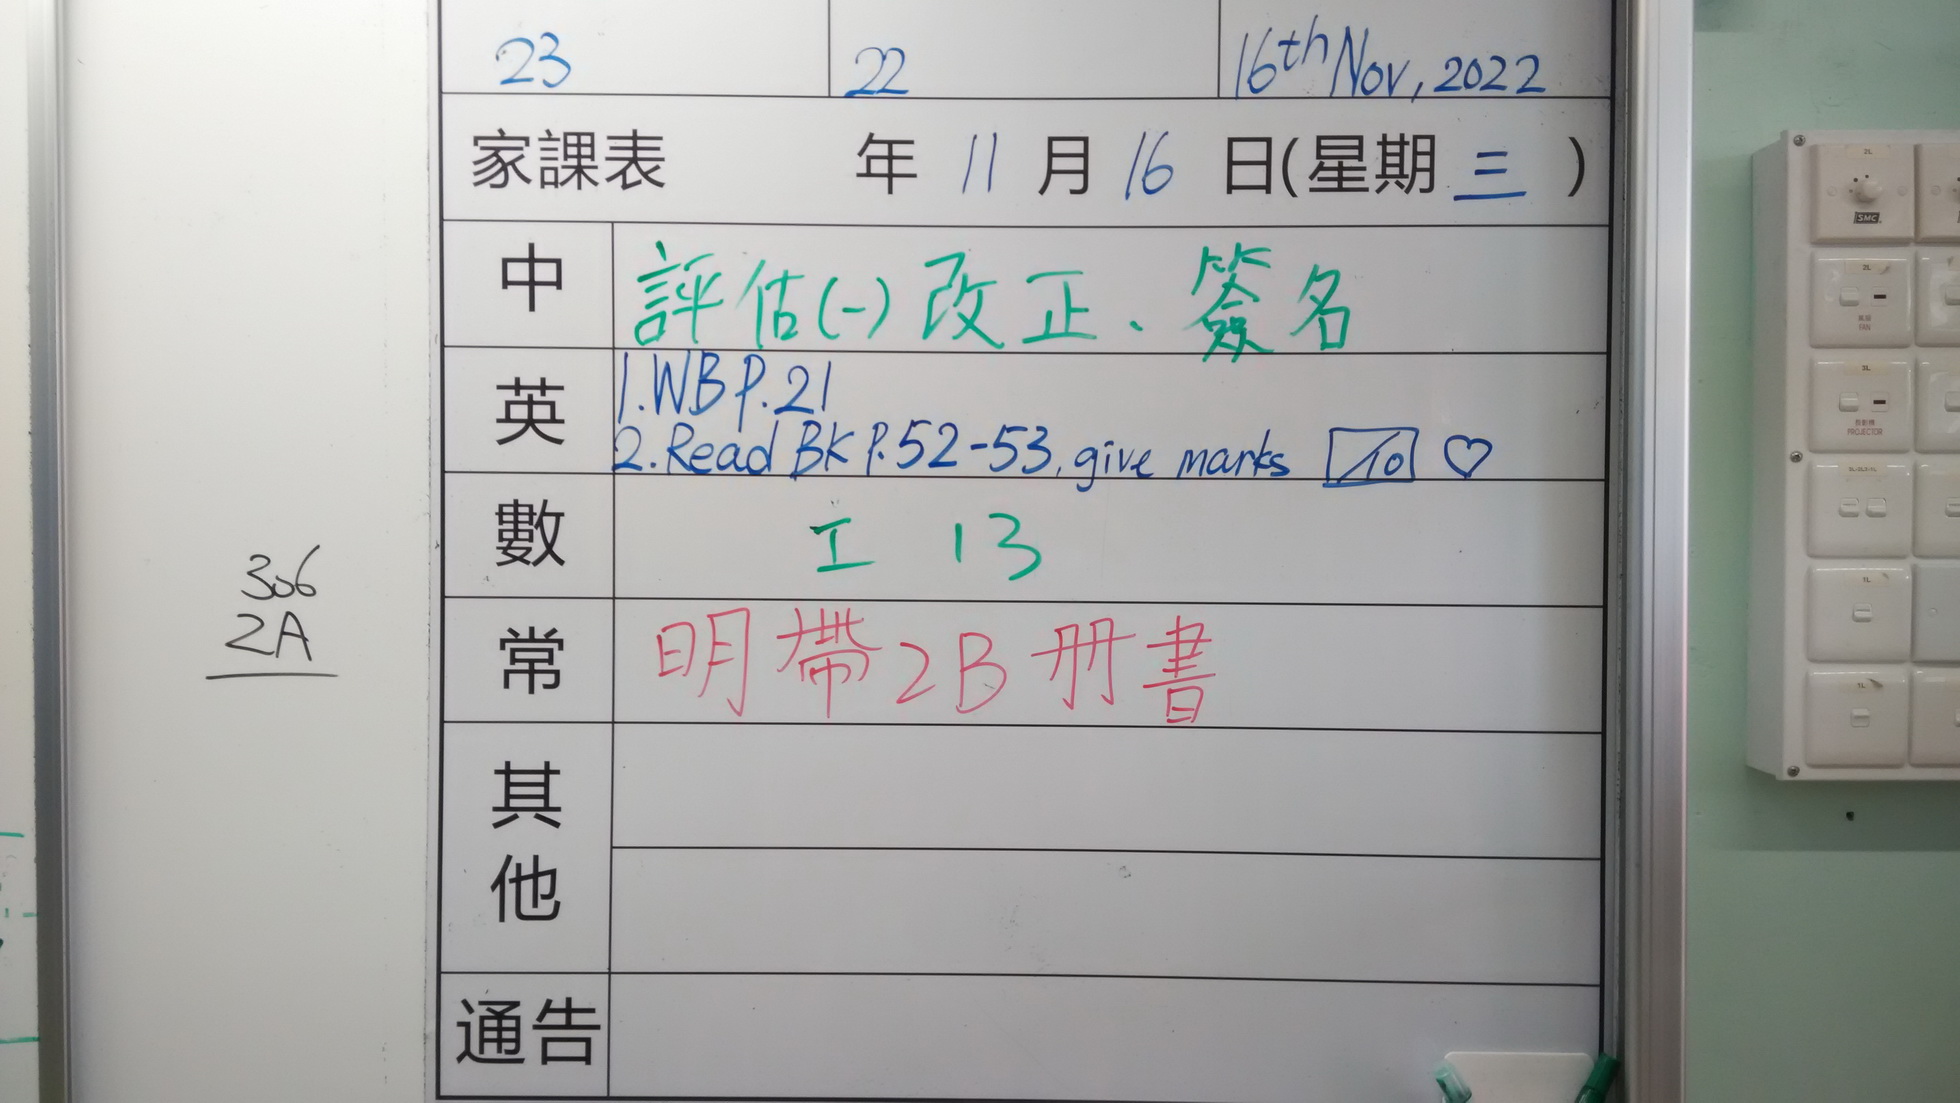 23 22 16th Nov, 2022
家課表 年 11 月 16 日(星期 三 )
中 評估(一)改正、簽名
英 1. WB P.21
2. Read BK P.52-53, give marks /10 ♡
數 工 13
常 明帶2B冊書
其他
通告
306
2A
2L
SMC
2L
風扇
FAN
3L
投影機
PROJECTOR
1L
1L